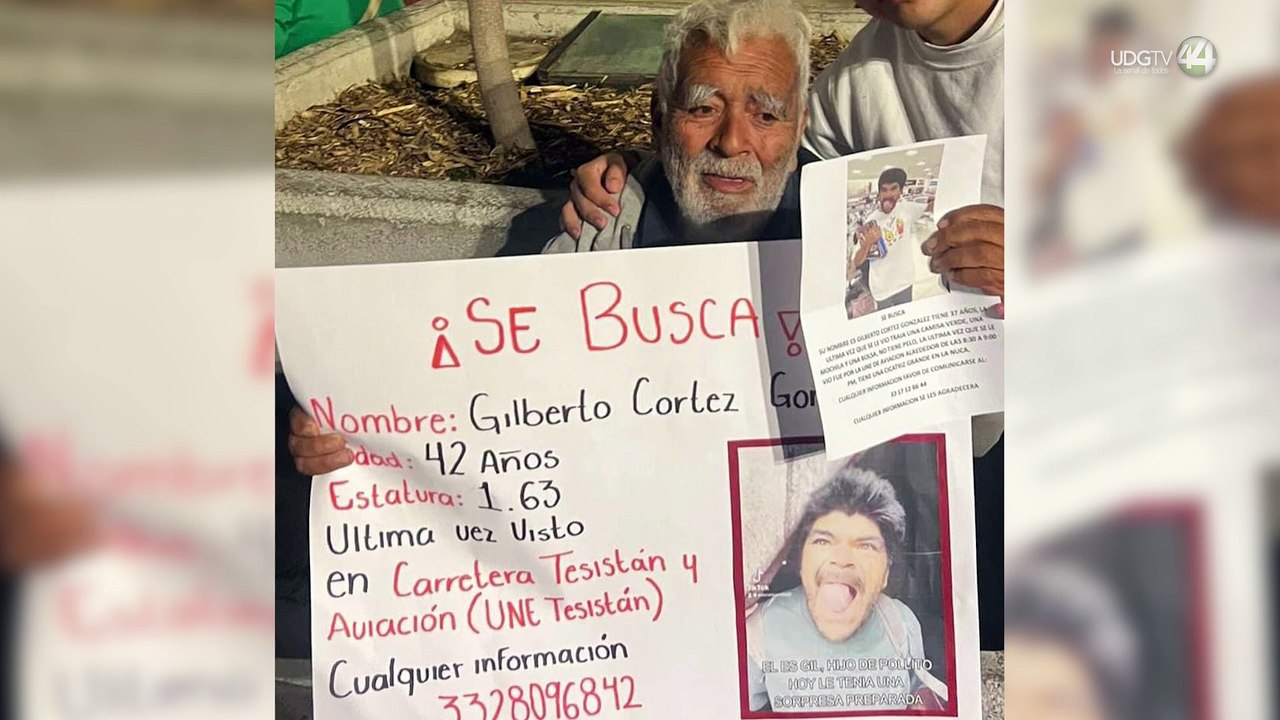 UDGTV 44
La señal de todos
¡SE BUSCA!
Nombre: Gilberto Cortez Gon
Edad: 42 Años
Estatura: 1.63
Ultima vez Visto
en Carretera Tesistán y
Aviación (UNE Tesistán)
Cualquier información
3328096842
SE BUSCA
SU NOMBRE ES GILBERTO CORTEZ GONZALEZ TIENE 37 AÑOS, LA
ULTIMA VEZ QUE SE LE VIO TRAIA UNA CAMISA VERDE, UNA
MOCHILA Y UNA BOLSA, NO TIENE PELO, LA ULTIMA VEZ QUE SE LE
VIO FUE POR LA UNE DE AVIACION ALREDEDOR DE LAS 8:30 A 9:00
PM, TIENE UNA CICATRIZ GRANDE EN LA NUCA.
CUALQUIER INFORMACION FAVOR DE COMUNICARSE AL:
33 17 13 86 44
CUALQUIER INFORMACION SE LES AGRADECERA
TikTok
EL ES GIL, HIJO DE POLLITO
HOY LE TENIA UNA
SORPRESA PREPARADA